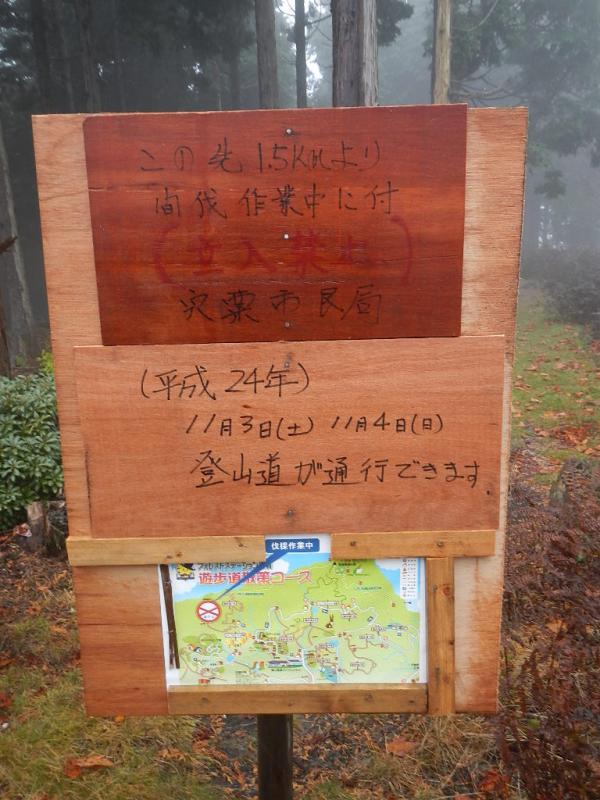 この先 1.5Kmより
間伐作業中に付
(立入禁止)
宍粟市民局
(平成24年)
11月3日(土) 11月4日(日)
登山道が通行できます.
伐採作業中
遊歩道散策コース